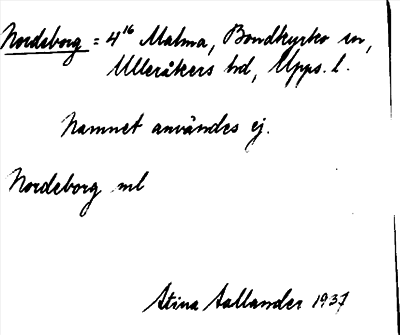 Nordeborg = 4¹⁶ Malma, Bondkyrko sn,
Ulleråkers hd, Upps. l.
Namnet användes ej.
Nordeborg ml
Stina Aallander 1937